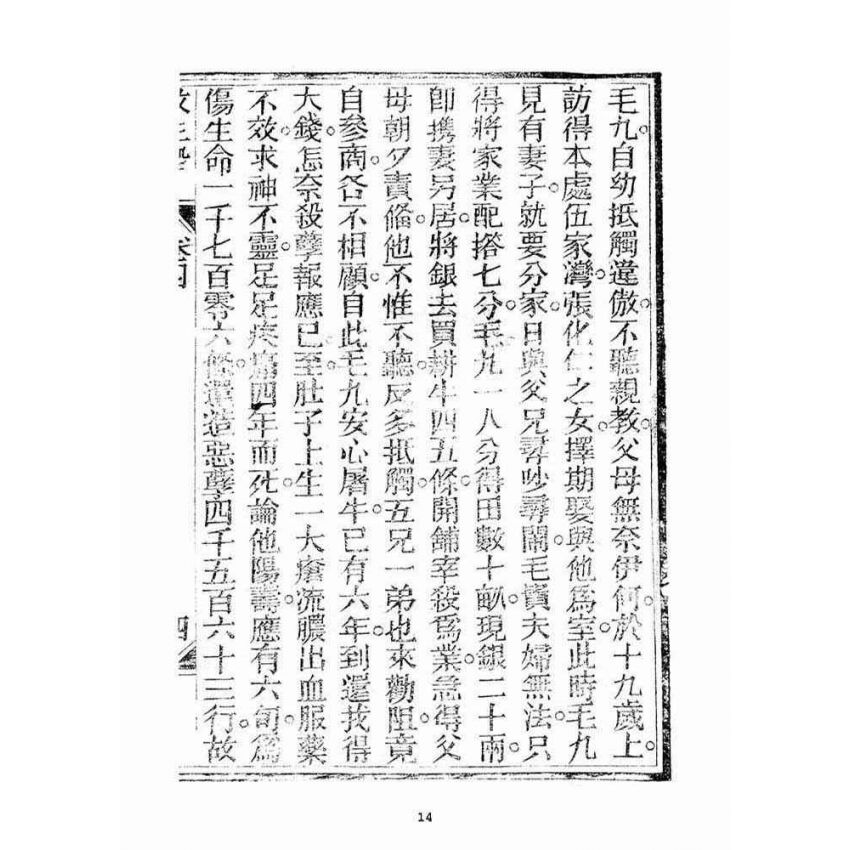 毛九。自幼抵觸違傲。不聽親教。父母無奈伊何。於十九歲上。
訪得本處伍家灣。張化仁之女。擇期娶與他爲室。此時毛九
見有妻子。就要分家。日與父兄尋吵尋鬧。毛寶夫婦無法。只
得將家業配搭七分。毛九一人分得田數十畝。現銀二十兩。
卽攜妻另居。將銀去買耕牛四五條。開鋪宰殺爲業。急得父
母朝夕責備。他不惟不聽。反多抵觸。五兄一弟。也來勸阻。竟
自參商。各不相顧。自此毛九安心屠牛。已有六年。到還找得
大錢。怎奈殺孽報應已至。肚子上生一大瘡。流膿出血。服藥
不效。求神不靈。足足疾痛四年而死。論他陽壽。應有六旬。爲
傷生命一千七百零六條。還造惡孽四千五百六十三行。故
卷四
四
14